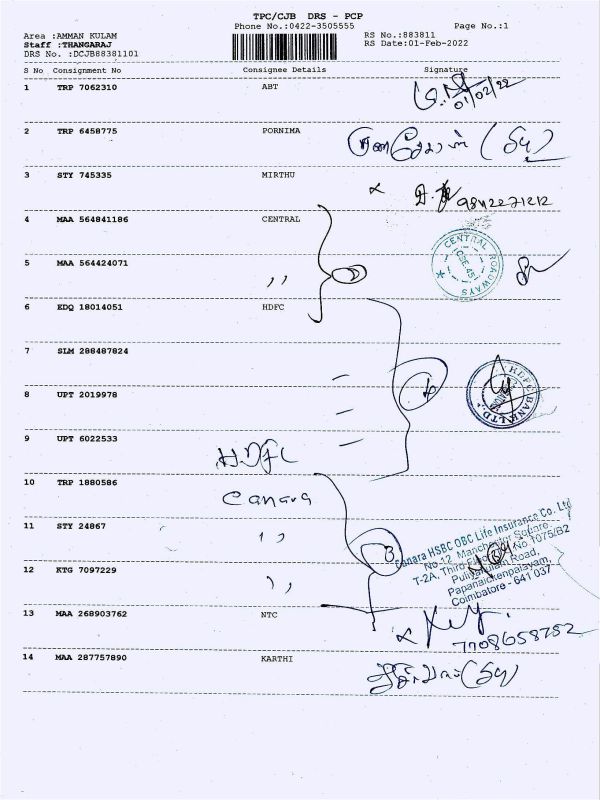 TPC/CJB DRS - PCP
Phone No.:0422-3505555 Page No.:1
Area :AMMAN KULAM RS No.:883811
Staff :THANGARAJ RS Date:01-Feb-2022
DRS No. :DCJB88381101
S No Consignment No Consignee Details Signature
1 TRP 7062310 ABT
01/02/22
2 TRP 6458775 PORNIMA
3 STY 745335 MIRTHU
9842271212
4 MAA 564841186 CENTRAL
CENTRAL ROADWAYS
CBE-45
5 MAA 564424071 ,,
6 EDQ 18014051 HDFC
7 SLM 288487824
8 UPT 2019978
HDFC BANK LTD.
9 UPT 6022533
HDFC
10 TRP 1880586 Canara
11 STY 24867 ,,
3
Canara HSBC OBC Life Insurance Co. Ltd
No.12, Manchester Square,
T-2A, Third Floor, No.1075/B2
Puliyakulam Road,
Papanaickenpalayam,
Coimbatore - 641 037
12 KTG 7097229 ,,
13 MAA 268903762 NTC
7708658782
14 MAA 287757890 KARTHI